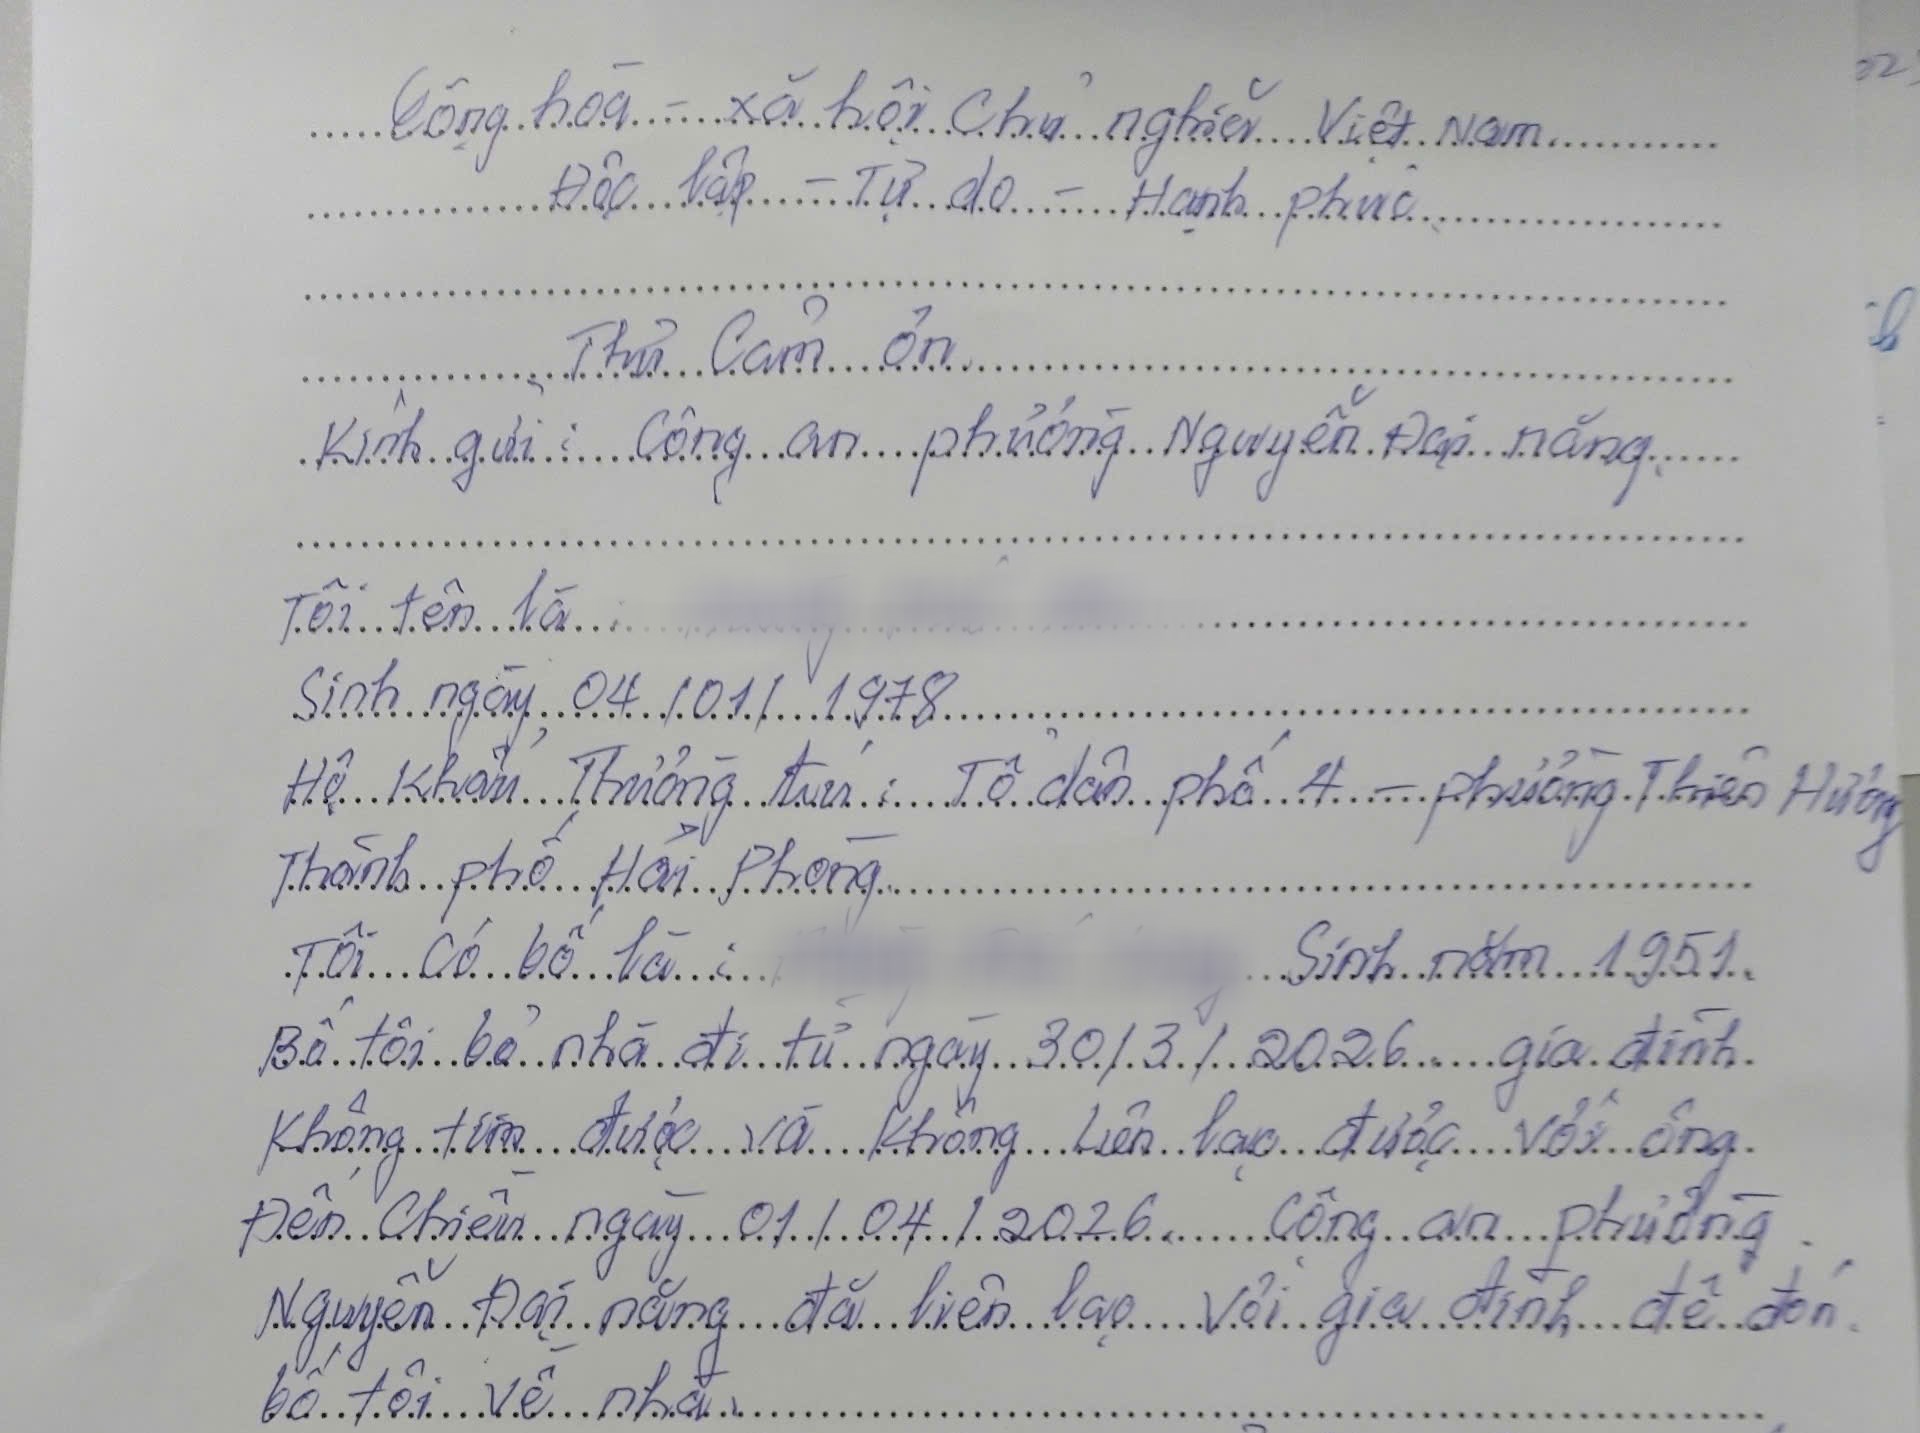 Cộng hòa - xã hội Chủ nghĩa Việt Nam
Độc lập - Tự do - Hạnh phúc
Thư Cảm ơn
Kính gửi : Công an phường Nguyễn Đại năng
Tôi tên là :
Sinh ngày 04/01/1978
Hộ khẩu Thường trú : Tổ dân phố 4 - phường Thiên Hương
Thành phố Hải Phòng
Tôi có bố là : Sinh năm 1951
Bố tôi bỏ nhà đi từ ngày 30/3/2026 gia đình
Không tìm được và Không Liên lạc được với ông
Đến Chiều ngày 01/04/2026. Công an phường
Nguyễn Đại năng đã liên lạc với gia đình để đón
bố tôi về nhà.